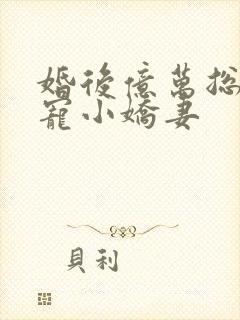 婚後億萬總
寵小嬌妻
貝利